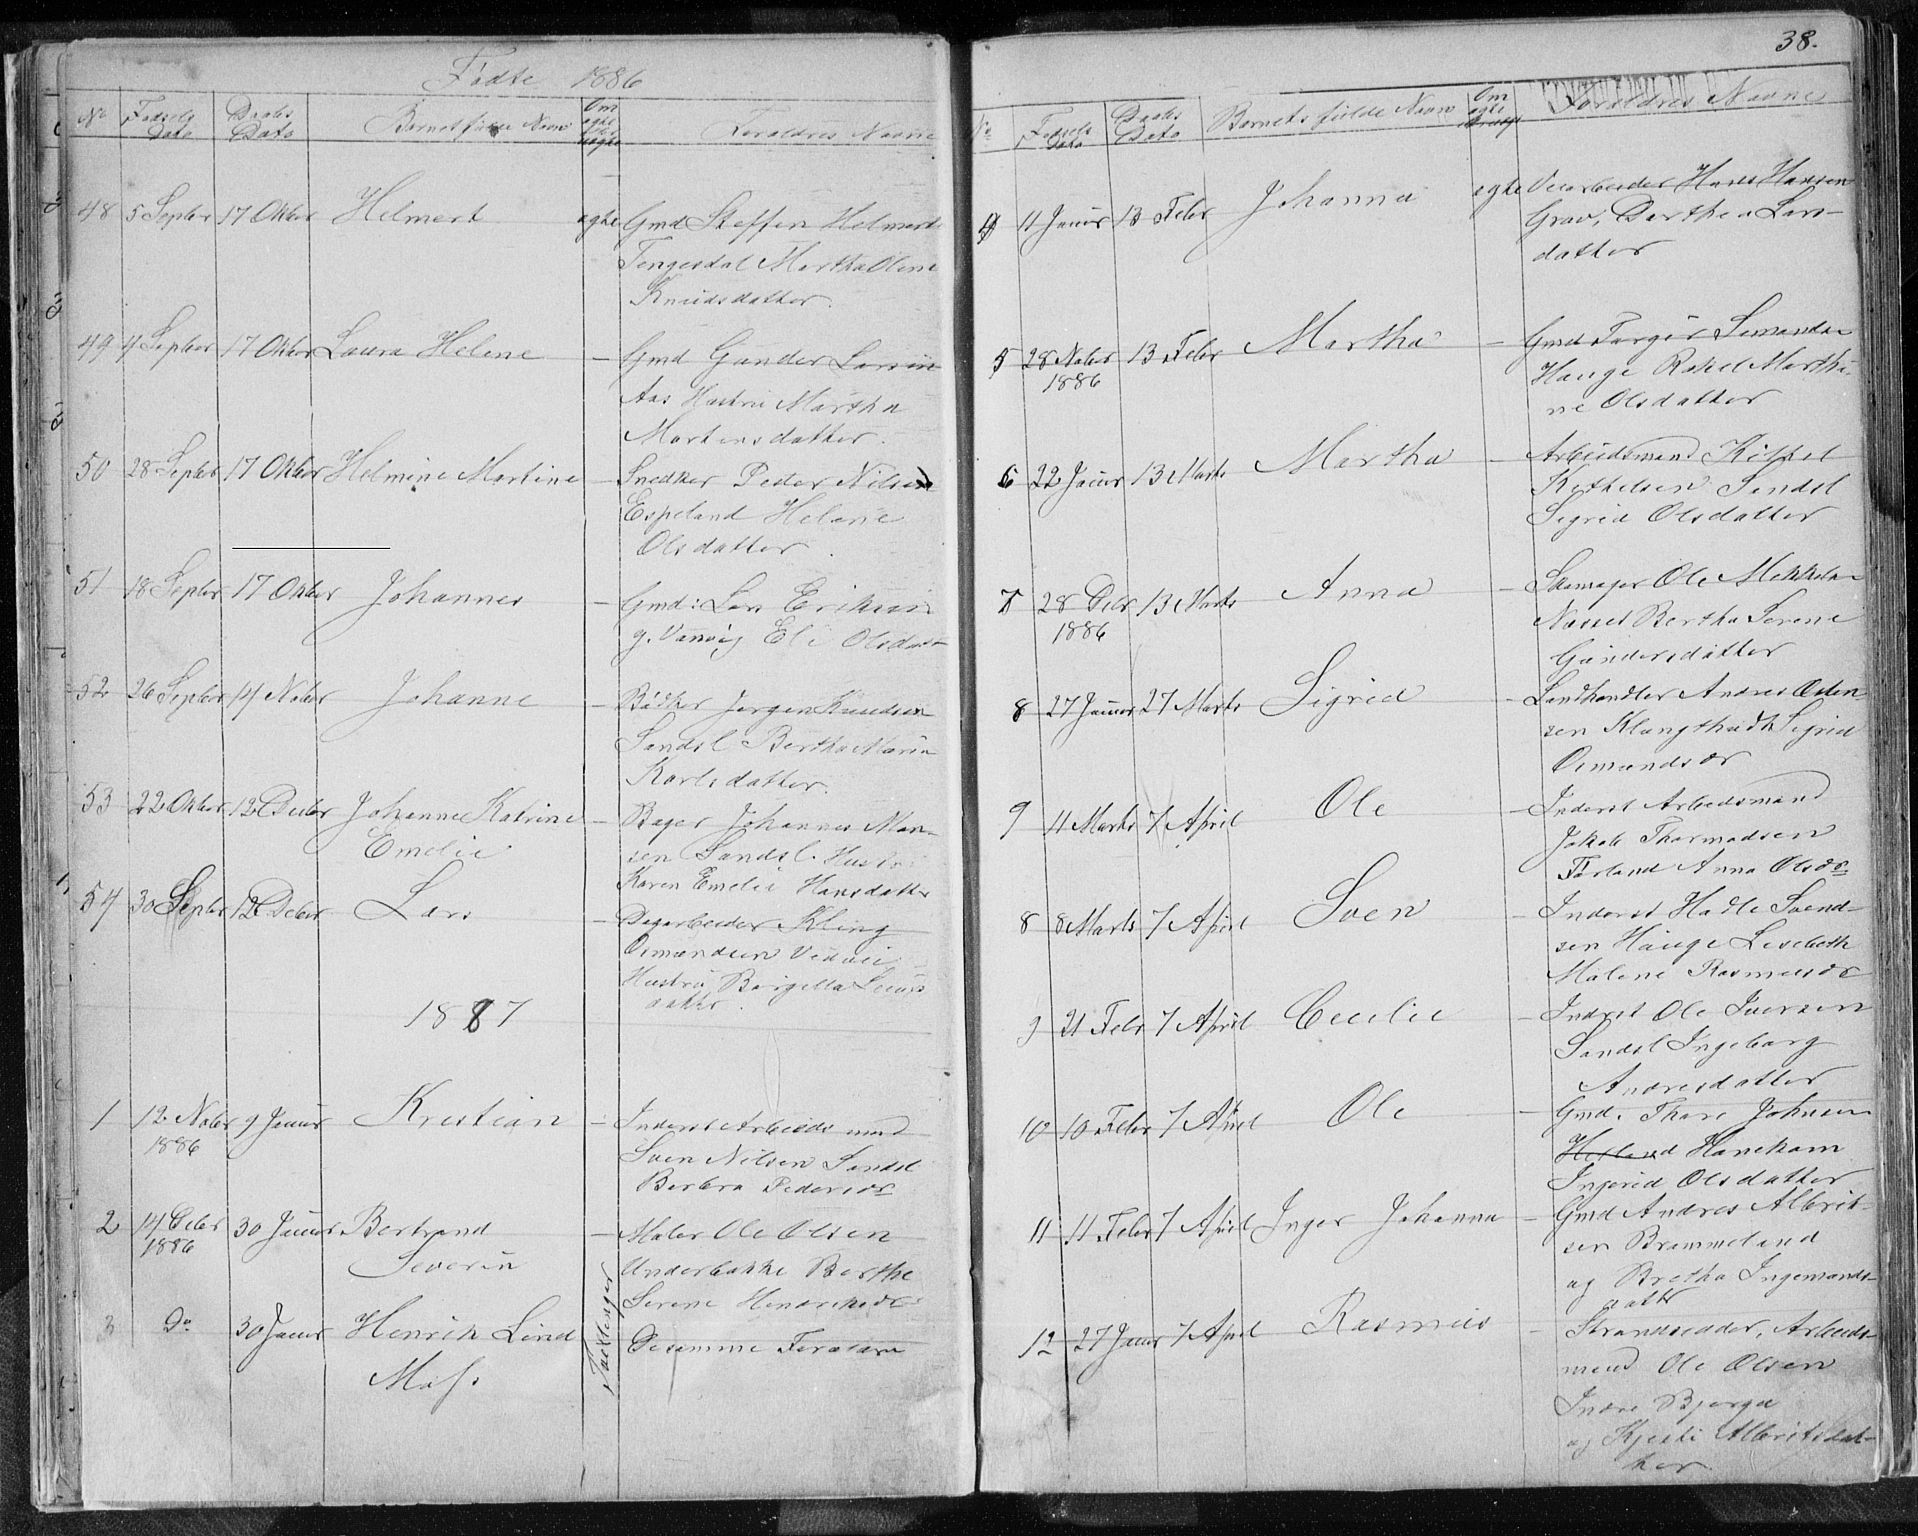 Fødte 1886
No Fødsels Dato Daabs Dato Barnets fulde Navn Om ægte eller uægte Forældres Navne
48 5 Septbr 17 Oktbr Helmert ægte Gmd Steffen Helmerts
Tengesdal Martha Olene
Knudsdatter.
49 4 Septbr 17 Oktbr Laura Helene – Gmd Gunder Larsen
Aas Hustru Martha
Mortensdatter.
50 28 Septbr 17 Oktbr Helmine Martine – Snedker Peder Nilsen
Espeland Helene
Olsdatter.
51 18 Septbr 17 Oktbr Johannes – Gmd: Lars Eriksen
g. Vanvig Eli Olsdatr
52 26 Septbr 14 Novbr Johanne – Bødker Jørgen Knudsen
Sandsl. Bertha Maria
Karlsdatter.
53 22 Oktbr 12 Decbr Johanne Katrine – Bager Johannes Mon-
Emelie sen Sandsl. Hustru
Karen Emelie Hansdatter
54 30 Septbr 12 Decbr Lars – Dagarbeider Kling
Osmundsen
Hustru Børgilla
datter.
1887
1 12 Novbr 9 Januar Kristian – Inderst Arbeidsmand
1886 Sven Nilsen Sandsl
Berbra Pedersdr
2 14 Decbr 30 Januar Bertrand – Maler Ole Olsen
1886 Severin Underbakke Berthe
Serene Henriksdr
3 Do 30 Januar Henrik Lind Tvillinger Desamme Forældre
Mass.
38.
No Fødsels Dato Daabs Dato Barnets fulde Navn Om ægte eller uægte Forældres Navne
4 11 Januar 13 Febr Johanna ægte Veiarbeider Hans Hansen
Grav, Dorthea Lars-
datter
5 28 Novbr 13 Febr Martha – Gmd Torger Simonsen
1886 Hauge Rakel Martha-
ne Olsdatter
6 22 Januar 13 Marts Martha – Arbeidsmand Kittel
Kethelsen Sandsl
Sigrid Olsdatter
7 28 Decbr 13 Marts Anna – Skomager Ole Mikkelsen
1886 Næsset Bertha Serene
Gundersdatter
8 27 Januar 27 Marts Sigrid – Landhandler Andres Osten-
sen Klungtvedt Sigrid
Osmundsdr
9 11 Marts 7 April Ole – Inderst Arbeidsmand
Jakob Thormodsen
Førland Anna Olsdr
8 8 Marts 7 April Sven – Inderst Hadle Svend-
sen Hauge Lisebeth
Malene Rasmusdr
9 21 Febr 7 April Cecilie – Inderst Ole Iversen
Sandsl Ingeborg
Andresdatter
10 10 Febr 7 April Ole – Gmd. Thore Johnsen
Hanekam
Ingerid Olsdatter
11 11 Febr 7 April Inger Johanna – Gmd Andres Albrit-
sen Brommeland
og Bretha Ingemunds-
datter
12 27 Januar 7 April Rasmus – Strandsidder, Arbeids-
mand Ole Olsen
Indre Bjørga
og Kjersti Albritsdat-
ter